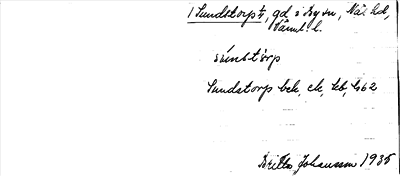 1 Sundstorp 1/4, gd i By sn, Näs hd,
Värml. l.
súnstɔrp
Sundstorp bek, ek, kb, Gs62
Britta Johansson 1935